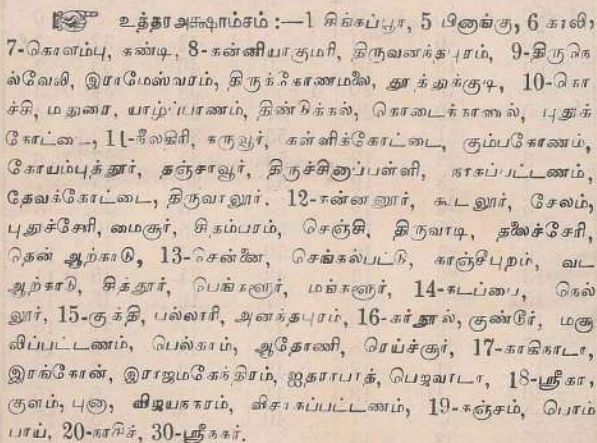 உத்தர அக்ஷாம்சம் :—1 சிங்கப்பூர், 5 பினாங்கு, 6 காலி,
7-கொளம்பு, கண்டி, 8-கன்னியாகுமரி, திருவனந்தபுரம், 9-திருநெ
ல்வேலி, இராமேஸ்வரம், திருக்கோணமலை, தூத்துக்குடி, 10-கொ
ச்சி, மதுரை, யாழ்ப்பாணம், திண்டுக்கல், கொடைக்கானல், புதுக்
கோட்டை, 11-நீலகிரி, கருவூர், கள்ளிக்கோட்டை, கும்பகோணம்,
கோயம்புத்தூர், தஞ்சாவூர், திருச்சினாப்பள்ளி, நாகப்பட்டணம்,
தேவக்கோட்டை, திருவாலூர். 12-கன்னனூர், கூடலூர், சேலம்,
புதுச்சேரி, மைசூர், சிதம்பரம், செஞ்சி, திருவாடி, தலைச்சேரி,
தென் ஆற்காடு, 13-சென்னை, செங்கல்பட்டு, காஞ்சீபுறம், வட
ஆற்காடு, சித்தூர், பெங்களூர், மங்களூர், 14-கடப்பை, நெல்
லூர், 15-குத்தி, பல்லாரி, அனந்தபுரம், 16-கர்நூல், குண்டூர், மசூ
லிப்பட்டணம், பெல்காம், ஆதோணி, ரெய்ச்சூர், 17-காகிநாடா,
இரங்கோன், இராஜமகேந்திரம், ஐதராபாத், பெஜவாடா, 18-ஸ்ரீகா,
குளம், புனா, விஜயநகரம், விசாகப்பட்டணம், 19-கஞ்சம், பொம்
பாய், 20-நாசிக், 30-ஸ்ரீநகர்.